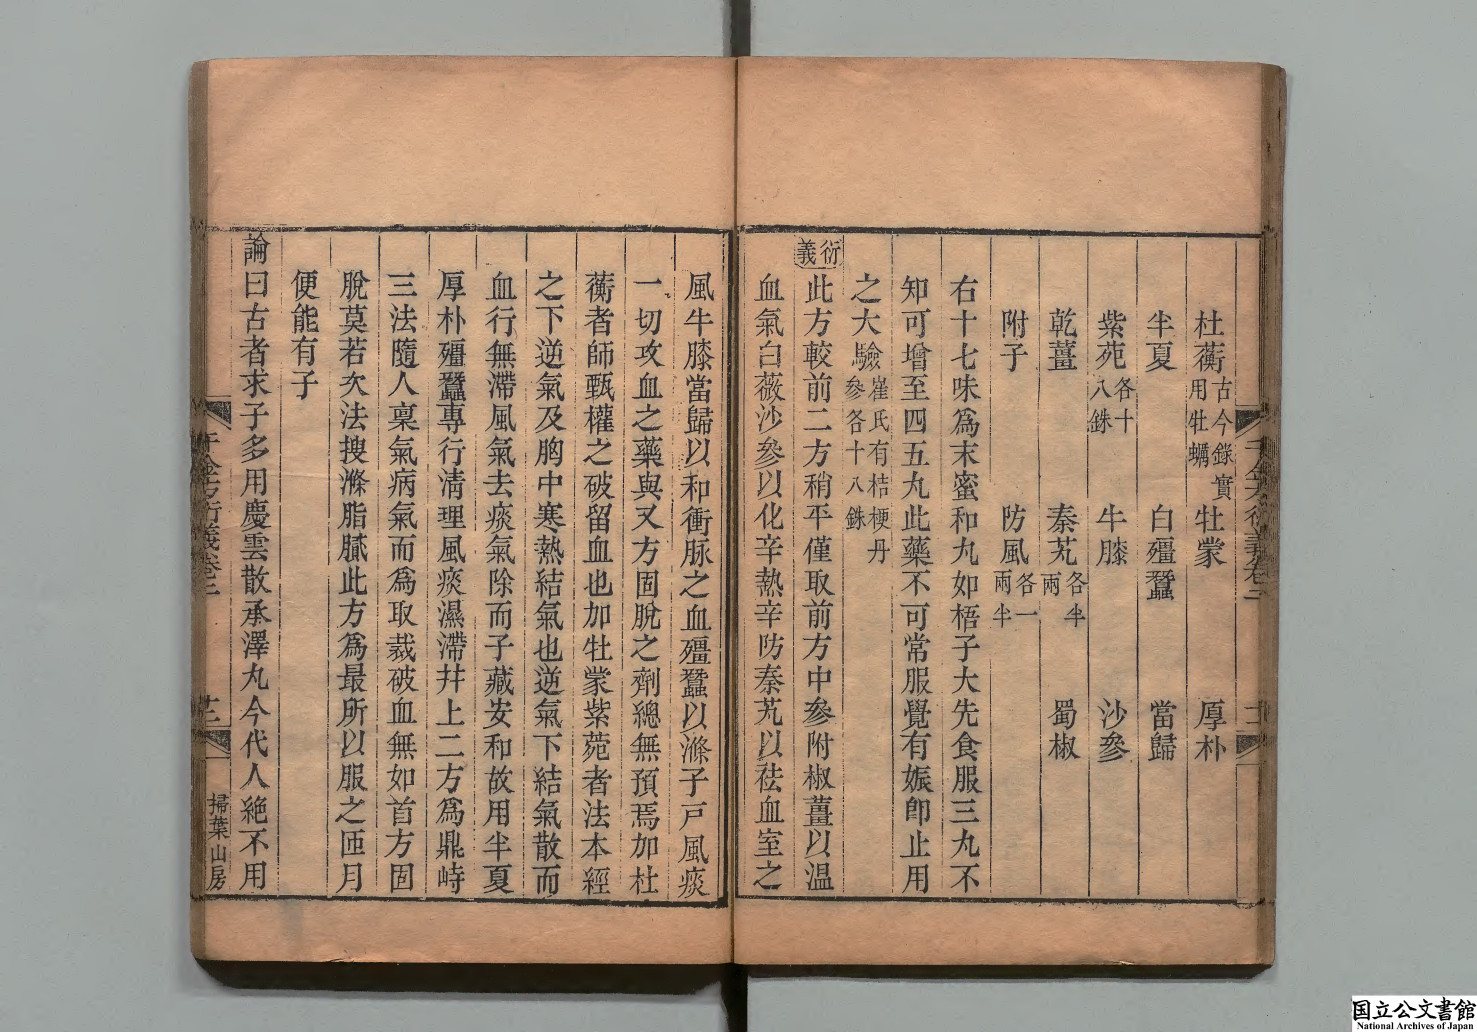 杜蘅古今錄實用牡蠣 牡蒙 厚朴
半夏 白殭蠶 當歸
紫苑各十八銖 牛膝 沙參
乾薑 秦艽各半兩 蜀椒
附子 防風各一兩半
右十七味爲末蜜和丸如梧子大先食服三丸不
知可增至四五丸此藥不可常服覺有娠卽止用
之大驗崔氏有桔梗丹參各十八銖
衍義
此方較前二方稍平僅取前方中參附椒薑以温
血氣白薇沙參以化辛熱辛防秦艽以祛血室之
風牛膝當歸以和衝脉之血殭蠶以滌子戸風痰
一切攻血之藥與又方固脫之劑總無預焉加杜
蘅者師甄權之破留血也加牡蒙紫菀者法本經
之下逆氣及胸中寒熱結氣也逆氣下結氣散而
血行無滯風氣去痰氣除而子藏安和故用半夏
厚朴殭蠶專行清理風痰濕滯幷上二方爲鼎峙
三法隨人稟氣病氣而爲取裁破血無如首方固
脫莫若次法搜滌脂膩此方爲最所以服之匝月
便能有子
論曰古者求子多用慶雲散承澤丸今代人絶不用
千金方衍義卷二
掃葉山房
国立公文書館
National Archives of Japan